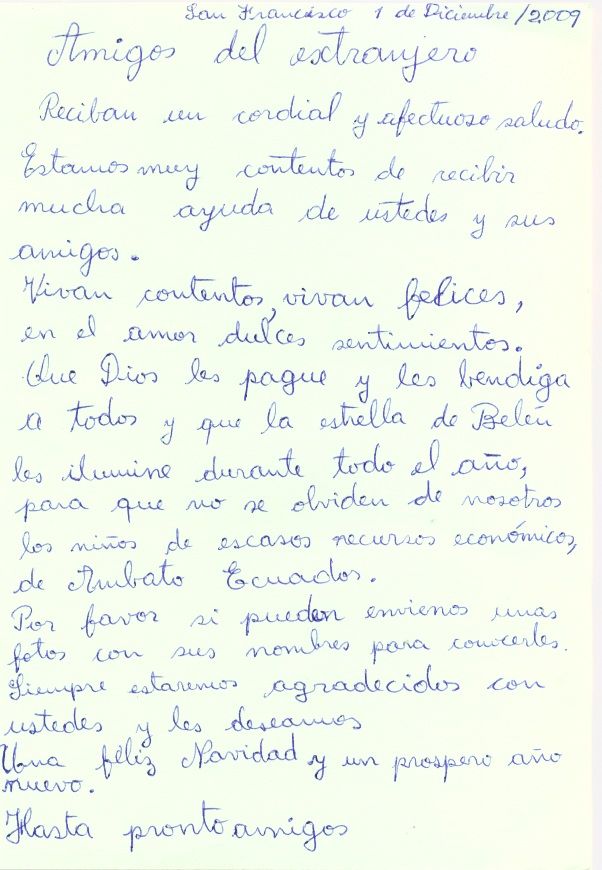 San Francisco 1 de Diciembre/2009
Amigos del extranjero
Reciban un cordial y afectuoso saludo.
Estamos muy contentos de recibir
mucha ayuda de ustedes y sus
amigos.
Vivan contentos, vivan felices,
en el amor dulces sentimientos.
Que Dios les pague y les bendiga
a todos y que la estrella de Belén
les ilumine durante todo el año,
para que no se olviden de nosotros
los niños de escasos recursos económicos,
de Ambato Ecuados.
Por favor si pueden envienos unas
fotos con sus nombres para conocerles.
Siempre estaremos agradecidos con
ustedes y les deseamos
Una féliz Navidad y un prospero año
nuevo.
Hasta pronto amigos